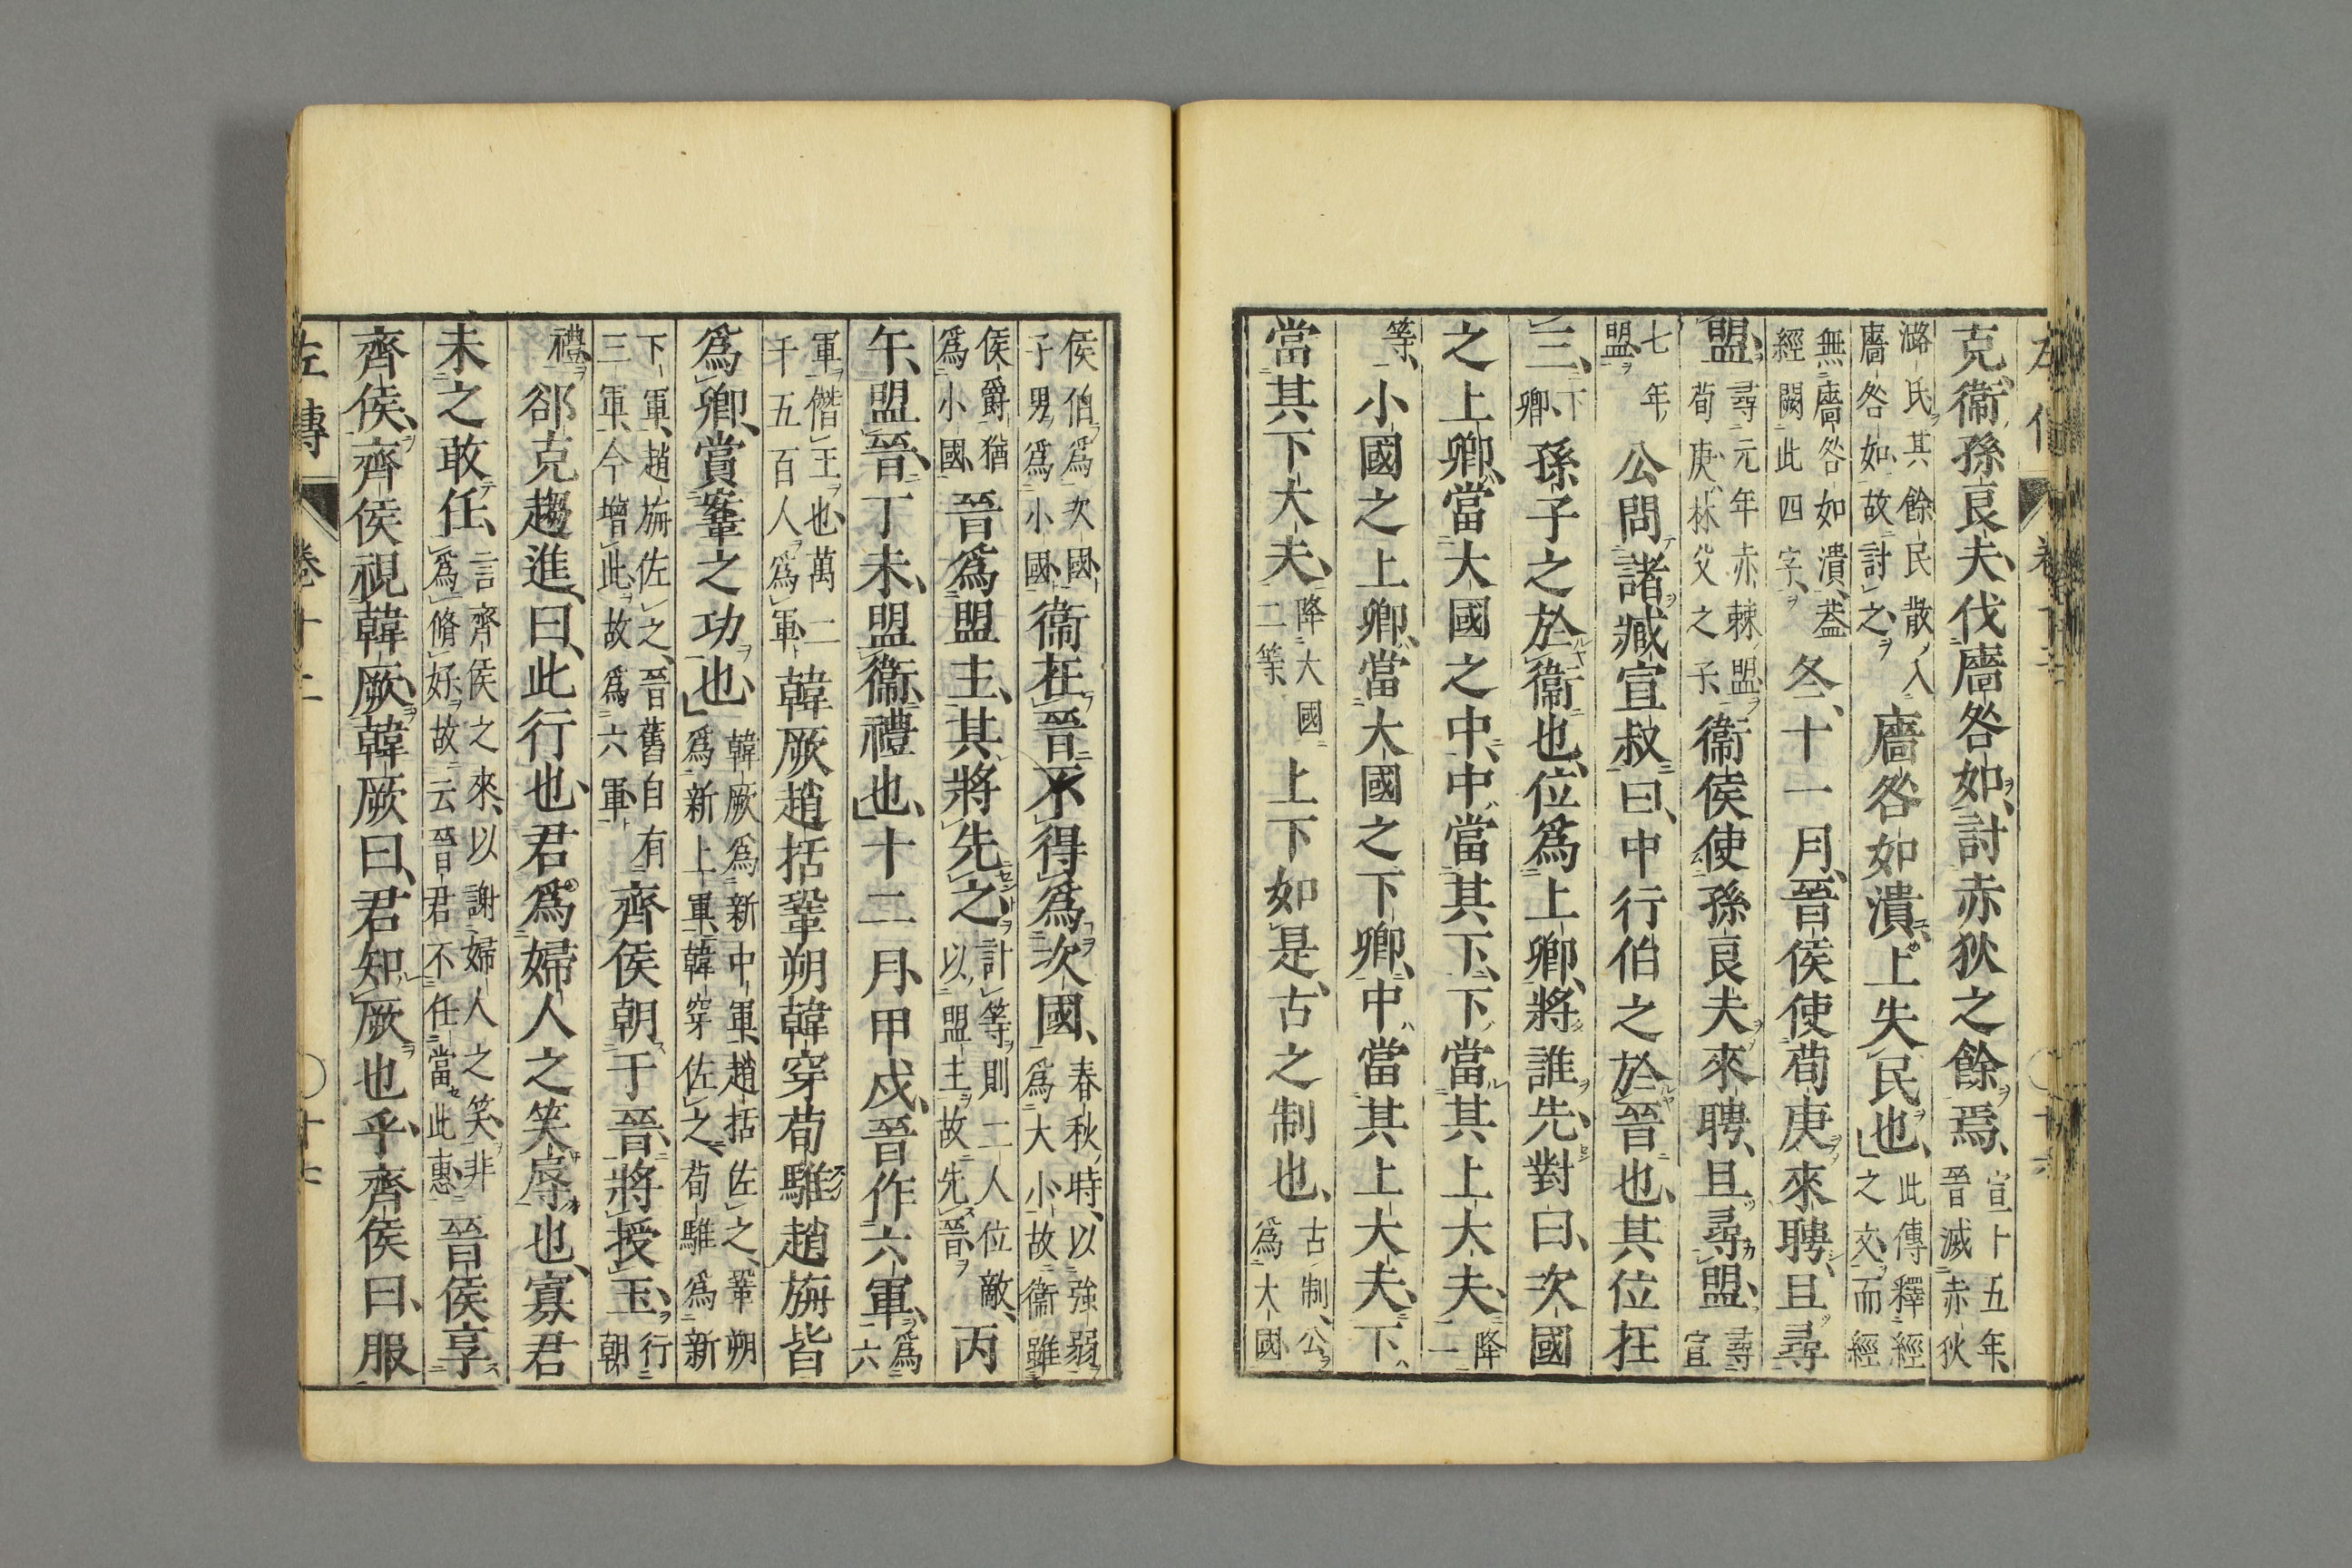 克衛孫良夫伐廧咎如討赤狄之餘焉宣十五年晉滅赤狄
潞氏其餘民散入廧咎如故討之廧咎如潰上失民也此傳釋經之文而經
無廧咎如潰蓋經闕此四字冬十一月晉侯使荀庚來聘且尋
盟尋元年赤棘盟荀庚林父之子衛侯使孫良夫來聘且尋盟尋宣
七年盟公問諸臧宣叔曰中行伯之於晉也其位在
三下卿孫子之於衛也位爲上卿將誰先對曰次國
之上卿當大國之中中當其下下當其上大夫降一
等小國之上卿當大國之下卿中當其上大夫下
當其下大夫降大國二等上下如是古之制也古制公爲大國
侯伯爲次國子男爲小國衛在晉不得爲次國春秋時以強弱爲大小故衛雖
侯爵猶爲小國晉爲盟主其將先之計等則二人位敵以盟主故先晉丙
午盟晉丁未盟衛禮也十二月甲戌晉作六軍爲六
軍僭王也萬二千五百人爲軍韓厥趙括鞏朔韓穿荀騅趙旃皆
爲卿賞鞌之功也韓厥爲新中軍趙括佐之鞏朔爲新上軍韓穿佐之荀騅爲新
下軍趙旃佐之晉舊自有三軍今增此故爲六軍齊侯朝于晉將授玉行朝
禮郤克趨進曰此行也君爲婦人之笑辱也寡君
未之敢任言齊侯之來以謝婦人之笑非爲脩好故云晉君不任當此惠晉侯享
齊侯齊侯視韓厥韓厥曰君知厥也乎齊侯曰服
左傳 卷十二